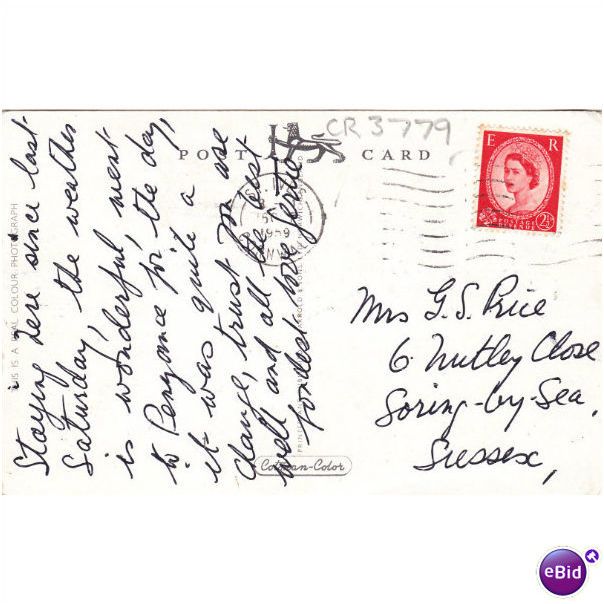 Staying here since last
Saturday, the weather
is wonderful, went
to Penzance for the day,
it was quite a
change, trust you are
well and all the best
fondest love Gertie
POST CARD
CR 3779
E R
POSTAGE
REVENUE
2½
1959
THIS IS A REAL COLOUR PHOTOGRAPH
Mrs G. S. Price
6 Nutley Close
Goring-by-Sea,
Sussex,
Cotman-Color
eBid